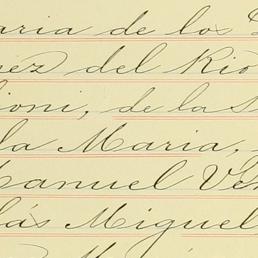 aria de los D
ez del Rio
ioni, de la S
la Maria,
Manuel Ve
lás Miguel